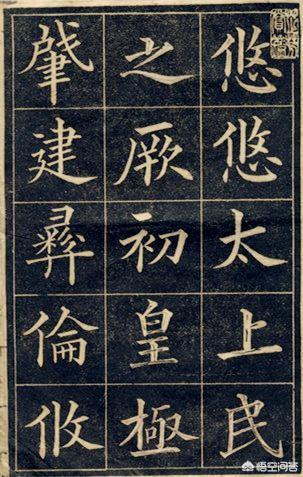 悠悠太上民
之厥初皇極
肈建彝倫攸
悟空问答